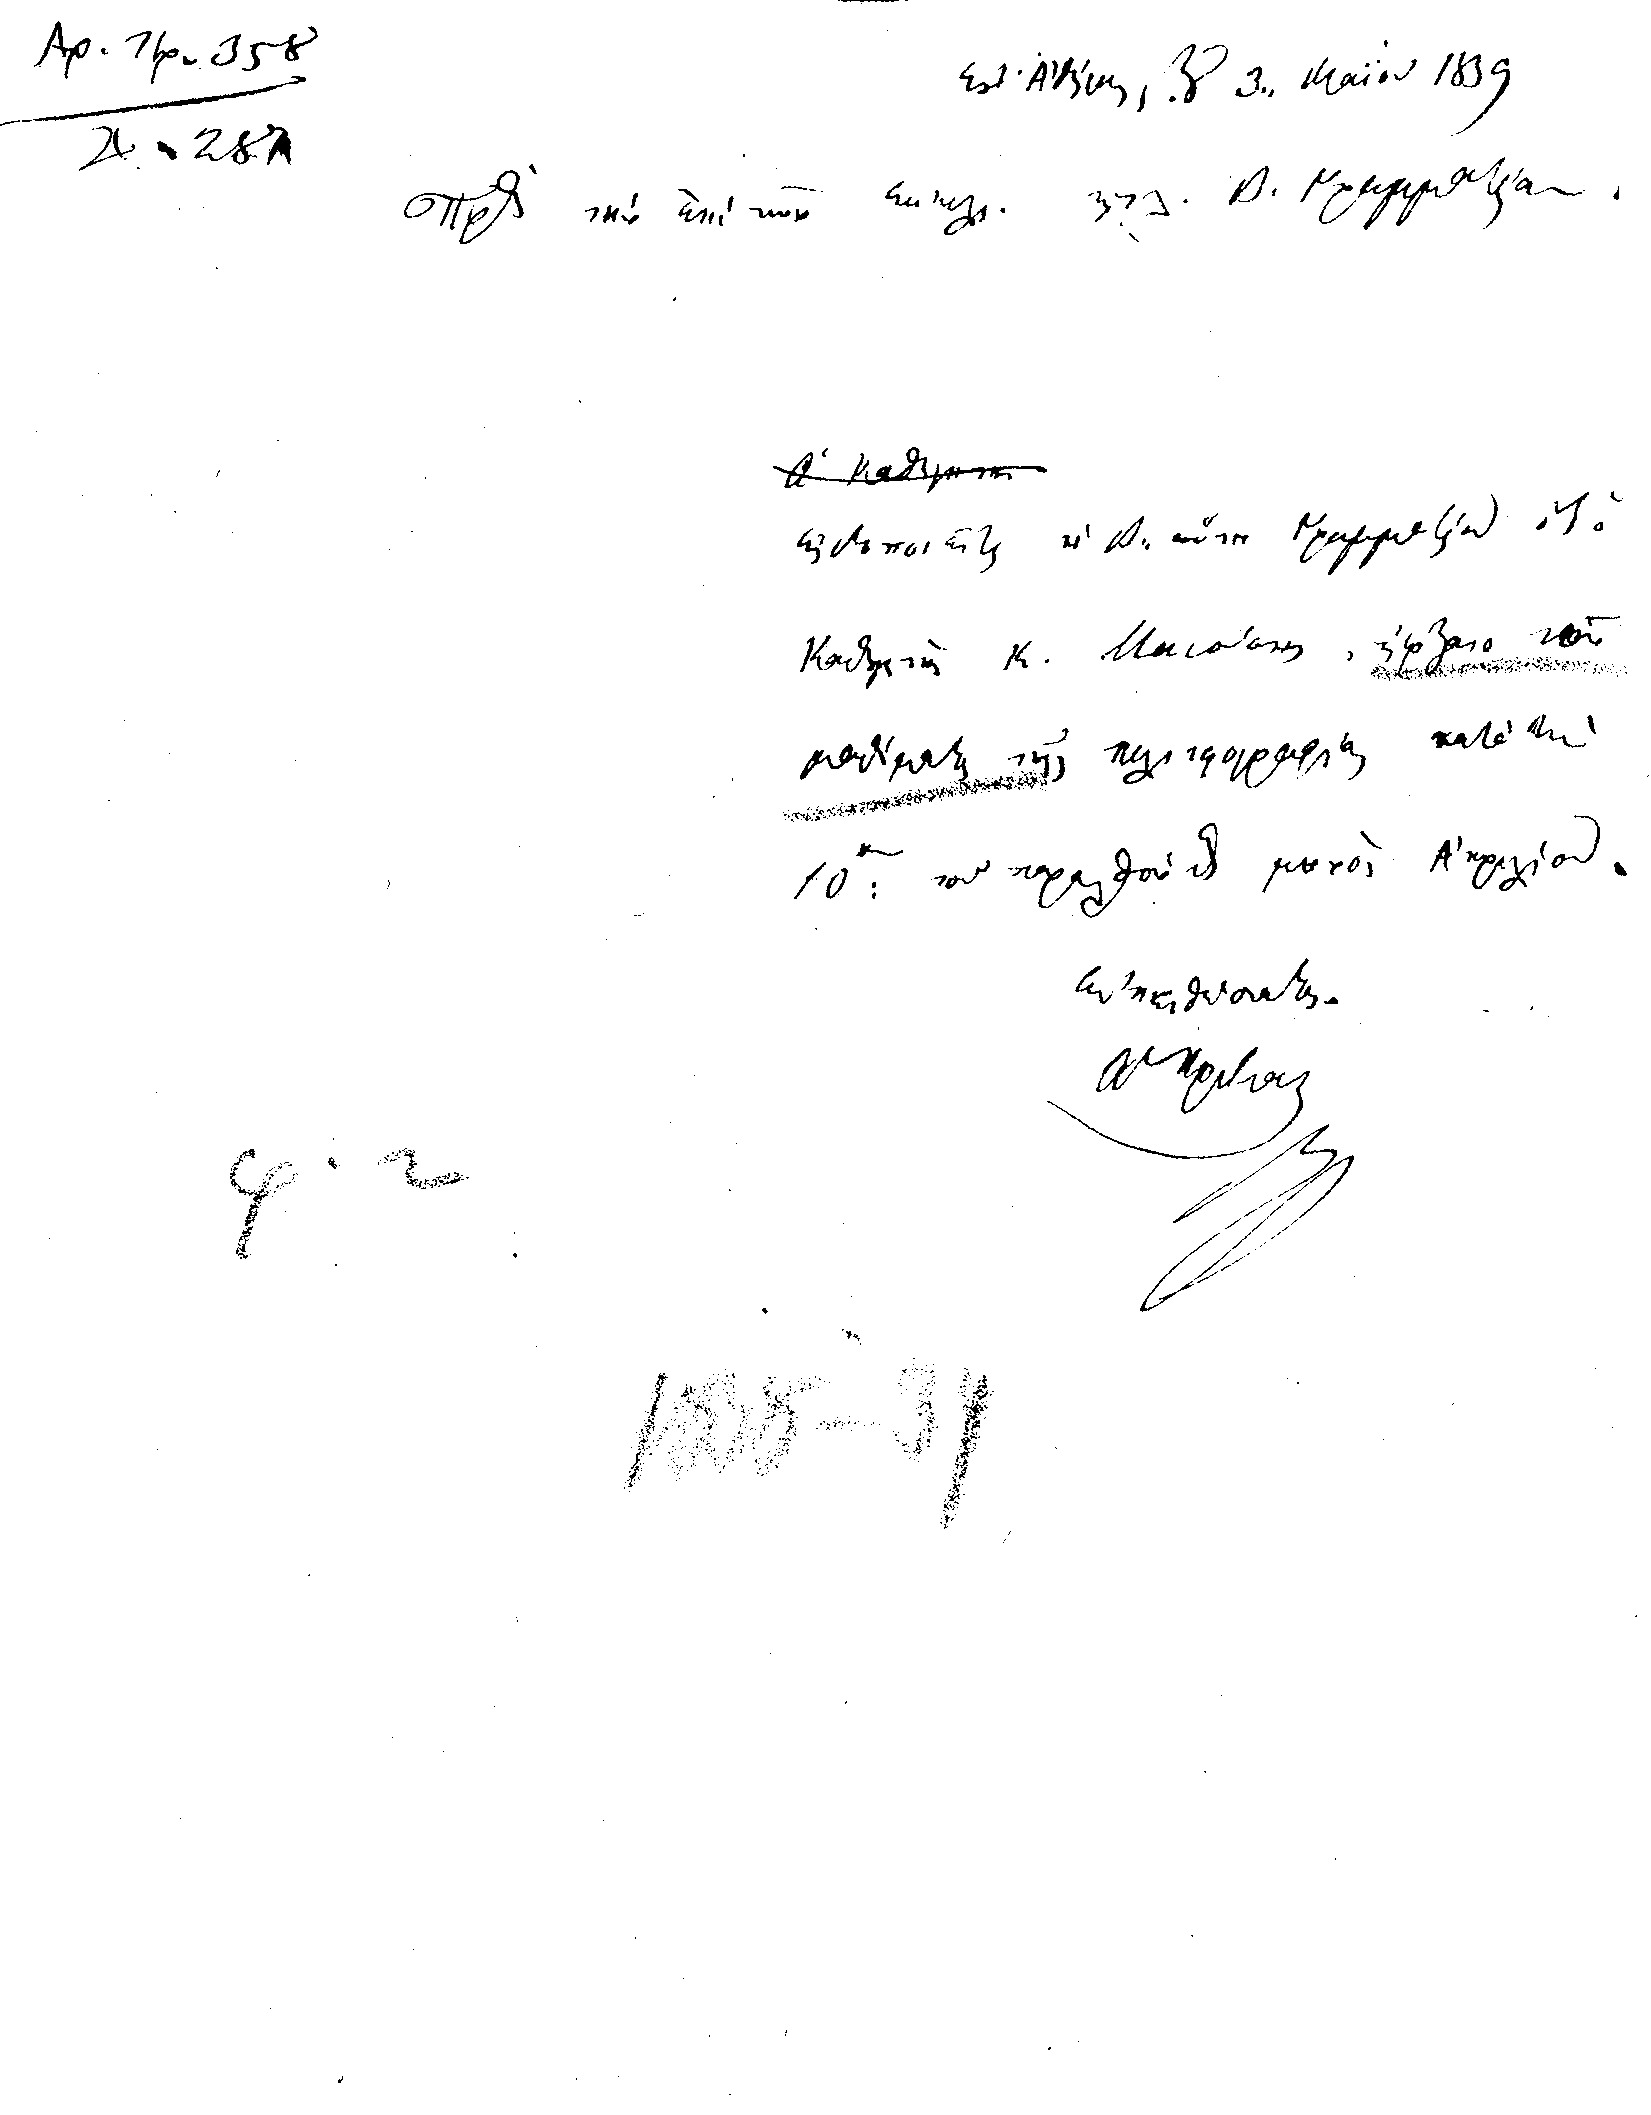 Αρ. Πρ. 358
Δ. 287
Ἐν Ἀθήναις, τῇ 3. Μαΐου 1839
Πρὸς τὴν ἐπὶ τῶν Ἐκκλ. κτλ. Β. Γραμματείαν.
Ὁ Καθηγητὴς
Εἰδοποιεῖται ἡ Β. αὕτη Γραμματεία ὅτι ὁ
Καθηγητὴς Κ. , ἤρξατο τοῦ
μαθήματος τῆς κατὰ τὴν
10ην. τοῦ παρελθόντος μηνὸς Ἀπριλίου.
Εὐπειθέστατος.
φ. 2